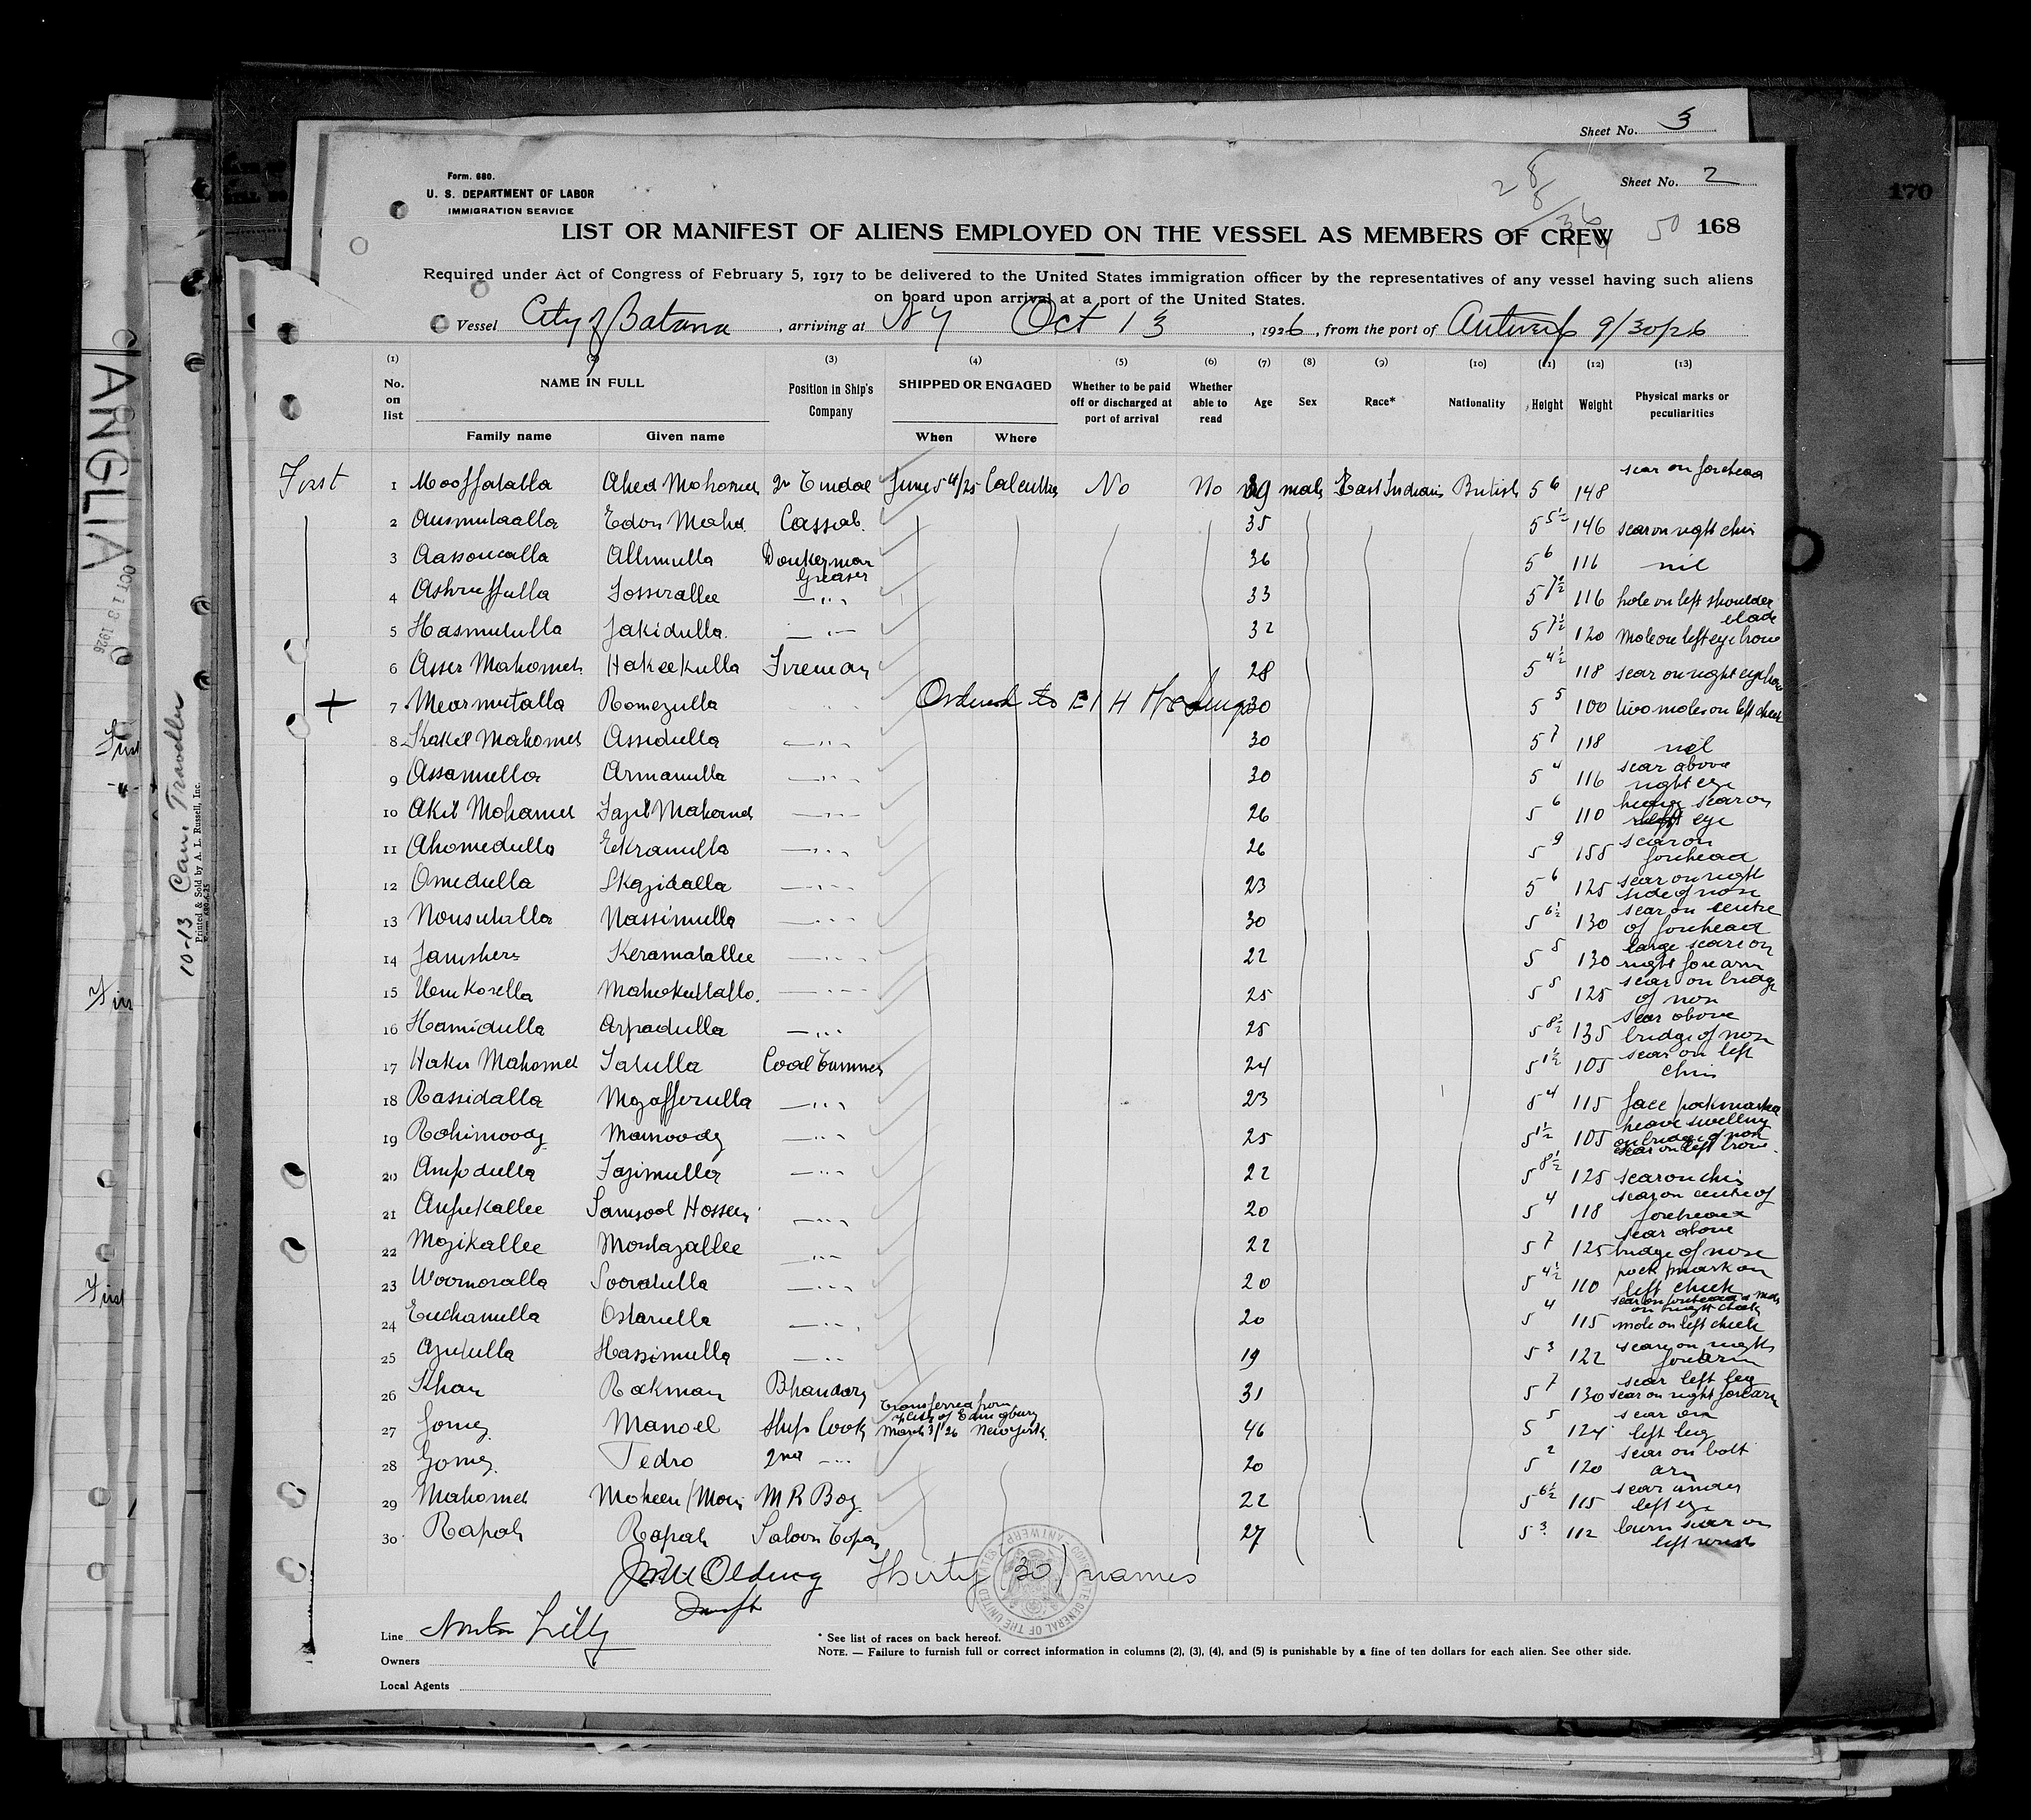 Sheet No. 3
Form. 680.
U. S. DEPARTMENT OF LABOR
IMMIGRATION SERVICE
Sheet No. 2
170
50 168
LIST OR MANIFEST OF ALIENS EMPLOYED ON THE VESSEL AS MEMBERS OF CREW
Required under Act of Congress of February 5, 1917 to be delivered to the United States immigration officer by the representatives of any vessel having such aliens
on board upon arrival at a port of the United States.
Vessel City of Batavia, arriving at NY Oct 13, 1926, from the port of Antwerp 9/30/26
(1) (2) (3) (4) (5) (6) (7) (8) (9) (10) (11) (12) (13)
No. on list NAME IN FULL Family name Given name Position in Ship's Company SHIPPED OR ENGAGED When Where Whether to be paid off or discharged at port of arrival Whether able to read Age Sex Race* Nationality Height Weight Physical marks or peculiarities
First 1 Mooffatalla Ahed Mahomed 2n Tindal June 5 4/25 Calcutta No No 39 male East Indian British 5 6 148 scar on forehead
2 Ausmutaalla Edon Mahd. Cassab. 35 5 5½ 146 scar on right chin
3 Aassoucalla Allimulla Donkeyman Greaser 36 5 6 116 nil
4 Ashruffulla Fossirallee —"— 33 5 7½ 116 hole on left shoulder blade
5 Hasmutulla Jakidulla. —"— 32 5 7½ 120 mole on left eye brow
6 Asser Mahomed. Hakeekulla Fireman 28 5 4½ 118 scar on right eyebrow
7 Mearmutalla Romezulla Ordered to E I H Hearing 30 5 5 100 two moles on left cheek
8 Kakil Mahomed Assidulla —"— 30 5 7 118 nil
9 Assamulla Armanulla —"— 30 5 4 116 scar above right eye
10 Akil Mohamed Fazil Mahomed —"— 26 5 6 110 heavy scar on eye
11 Ahomedulla Eekramulla —"— 26 5 9 155 scar on forehead
12 Omedulla Skazidalla —"— 23 5 6 125 scar on right side of nose
13 Nousutalla Nassimulla —"— 30 5 6½ 130 scar on centre of forehead
14 Jamshers Keramatallee —"— 22 5 5 130 large scars on right forearm
15 25 5 5 125 scar on bridge of nose
16 Hamidulla Arpadulla —"— 25 5 8½ 135 scar above bridge of nose
17 Haku Mahomed Satulla Coal Trimmer 24 5 1½ 105 scar on left chin
18 Rassidalla Mozafferulla —"— 23 5 4 115 face pockmarked
19 Rohimoody Mamoody —"— 25 5 1½ 105 heavy swelling on bridge of nose scar on left brow.
20 Ampodulla Fazimulla —"— 22 5 8½ 125 scar on chin
21 Aupukallee Samsool Hossein —"— 20 5 4 118 scar on centre of forehead
22 Mozikallee Montazallee —"— 22 5 7 125 scar above bridge of nose
23 Woomoralla Sooratulla —"— 20 5 4½ 110 pock mark on left cheek
24 Euchamulla Ostarulla —"— 20 5 4 115 scar on forehead & mole on right cheek mole on left cheek
25 Azutulla Hassimulla —"— 19 5 3 122 scars on right forearm
26 Khan Rakman Bhandary 31 5 7 130 scar left leg scar on right forearm
27 Gomez Manoel Ship's Cook Transferred from City of Edinburgh March 31/26 New York 46 5 5 124 scar on left leg
28 Gomez. Pedro 2nd —"— 20 5 2 120 scar on bolt arm
29 Mahomed Moheen M R Boy. 22 5 6½ 115 scar under left eye
30 Rapah Rapah Saloon Topas 27 5 3 112 burn scar on left wrist
Olding Thirty (30) names
CONSULATE GENERAL OF THE UNITED STATES ANTWERP
Line Norton Lilly
Owners
Local Agents
* See list of races on back hereof.
NOTE. — Failure to furnish full or correct information in columns (2), (3), (4), and (5) is punishable by a fine of ten dollars for each alien. See other side.
ANGLIA
OCT 13 1926
10-13 Can. Traveller
Printed & Sold by A. L. Russell, Inc.
First
First
First